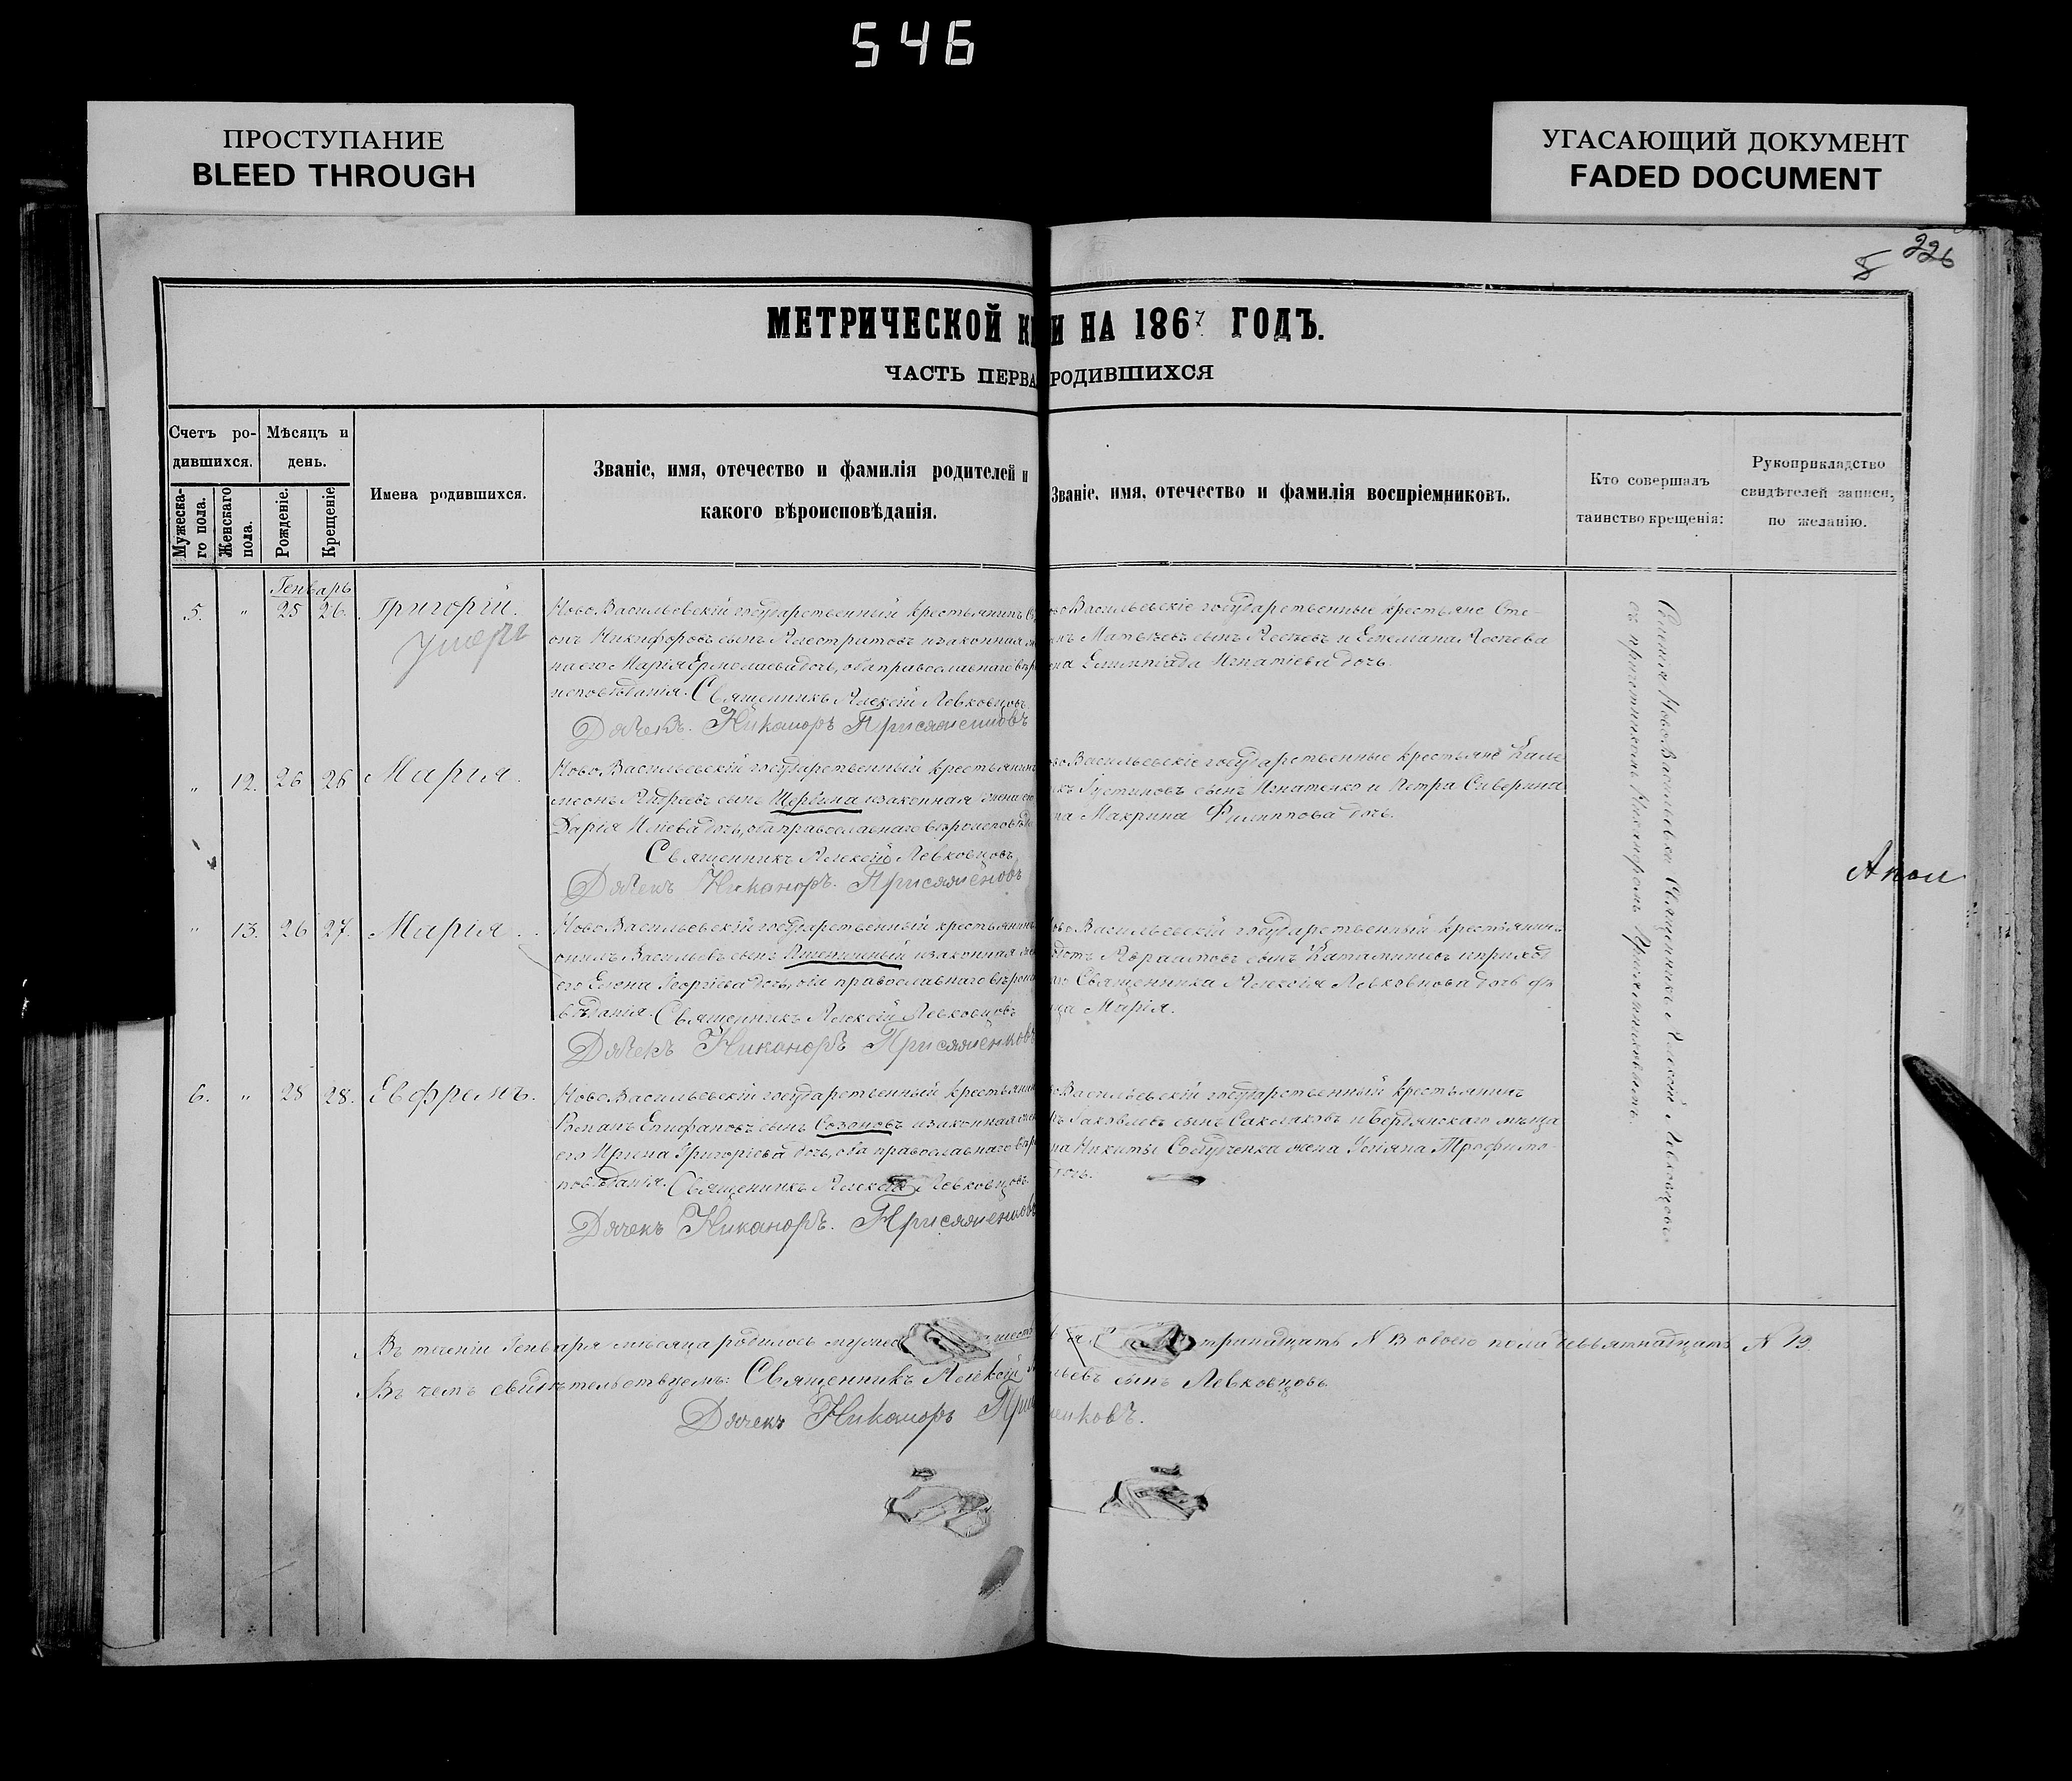 546
ПРОСТУПАНИЕ
BLEED THROUGH
УГАСАЮЩИЙ ДОКУМЕНТ
FADED DOCUMENT
226
МЕТРИЧЕСКОЙ К И НА 1867 ГОДЪ.
ЧАСТЬ ПЕРВА РОДИВШИХСЯ
Счетъ ро-
дившихся.
Мужеска-
го пола.
Женскаго
пола.
Мѣсяцъ и
день.
Рожденіе.
Крещеніе
Имена родившихся.
Званіе, имя, отечество и фамилія родителей и
какого вѣроисповѣданія.
Званіе, имя, отечество и фамилія воспріемниковъ.
Кто совершалъ
таинство крещенія:
Рукоприкладство
свидѣтелей записи,
по желанію.
Генварь
5. " 25 26. Григорій.
умеръ
НовоВасильевскій государственный крестьянинъ
онъ Никифоровъ сынъ изаконная
наего Марія Ермолаева дочь, оба православнаго вѣро
исповѣданія. Священникъ Алексій Левковцовъ
Дячекъ. Никаноръ Присяженковъ
воВасильевскіе государственные крестьяне Сте-
Матвѣевъ сынъ и
на Игнатіева дочь.
" 12. 26 26 Марія.
НовоВасильевскій государственный крестьянинъ
меонъ Андреевъ сынъ Щербина изаконная жена его
Дарія Иліева дочь, оба православнаго вѣроисповѣда
Священникъ Алексій Левковцовъ
Дячекъ Никаноръ. Присяженковъ
воВасильевскіе государственные крестьяне
Іустиновъ сынъ Игнатенко и Петра Северина
на Макрина Филиппова дочь.
" 13. 26 27. Марія.
НовоВасильевскій государственный крестьянинъ
Васильевъ сынъ Пшеничный изаконная же
его Елена Георгіева дочь, оба православнаго вѣроис
вѣданія. Священникъ Алексій Левковцовъ
Дячекъ Никаноръ Присяженковъ
воВасильевскій государственный крестьянинъ
Авраамовъ сынъ и приход
Священника Алексія Левковцова дочь дѣ
ица Марія.
6. " 28 28. Евфремъ.
НовоВасильевскій государственный крестьянин
Романъ Епифановъ сынъ Созоновъ изаконная же
его Ирина Григоріева дочь, оба православнаго вѣро
повѣданія. Священникъ Алексій Левковцовъ.
Дячекъ Никаноръ. Присяженковъ
воВасильевскій государственный крестьянинъ
Іаковлевъ сынъ Саклаковъ и Бердянскаго мѣща
на Никиты жена Уліяна Трофимо-
дочь.
Селенія НовоВасильевки Священникъ Алексій Левковцовъ
съ причетникомъ Никаноромъ Присяженковымъ.
Въ теченіи Генваря мѣсяца родилось мужеск шест тринадцать N 13 обоего пола девятнадцать N 19.
Въ чемъ свидѣтельствуемъ: Священникъ Алексій ьевъ сынъ Левковцовъ.
Дячекъ Никаноръ При енковъ.